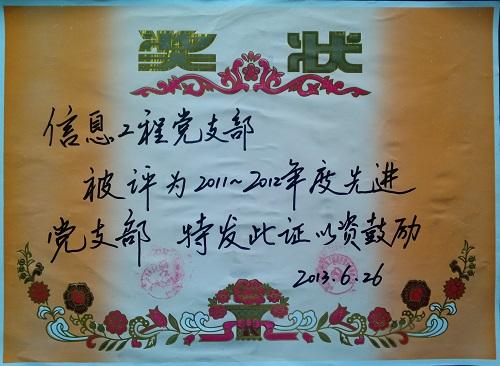 奖状
信息工程党支部
被评为2011~2012年度先进
党支部 特发此证以资鼓励
2013.6.26